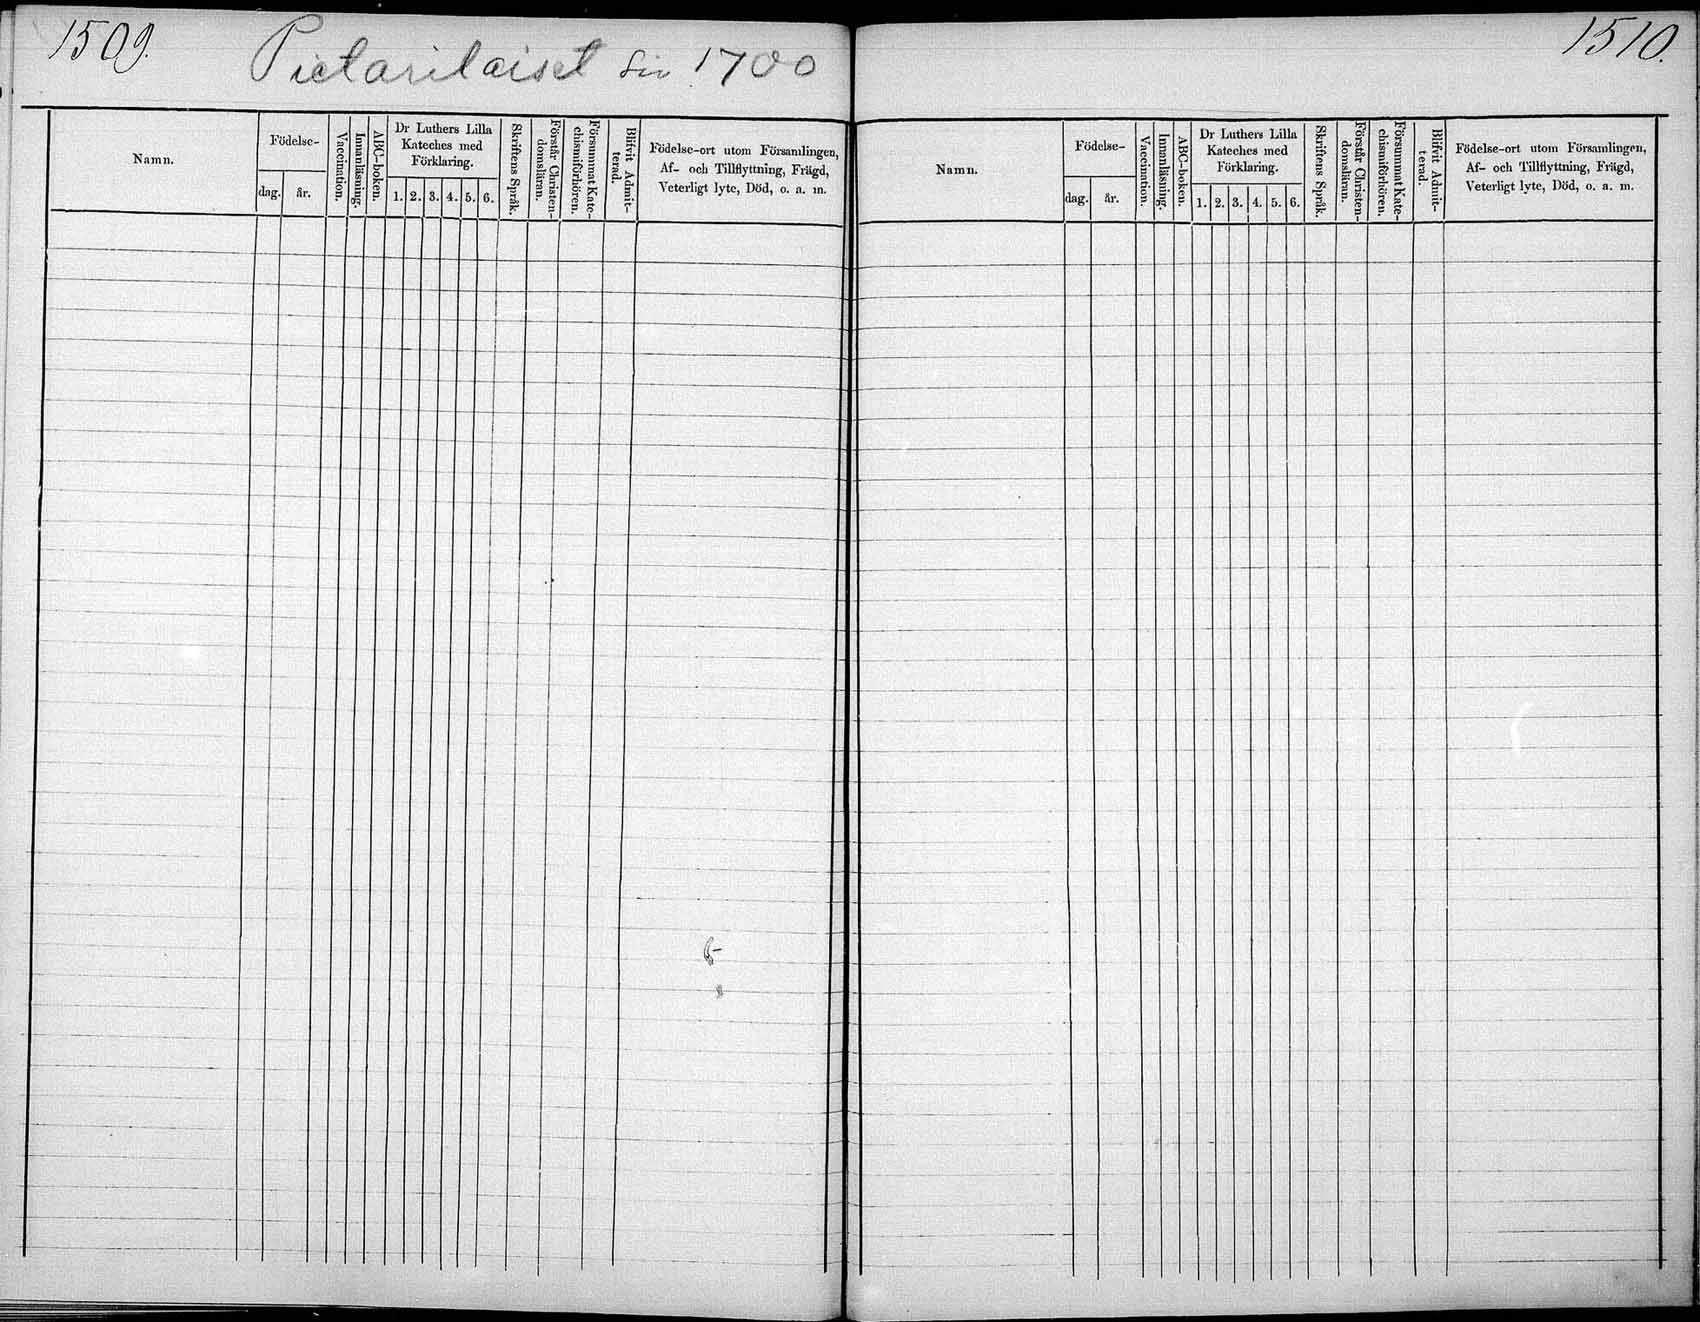 1509.
Pietarilaiset siv 1700
Namn.
Födelse-
dag.
år.
Vaccination.
Innanläsning.
ABC-boken.
Dr Luthers Lilla
Kateches med
Förklaring.
1. 2. 3. 4. 5. 6.
Skriftens Språk.
Förstår Christen-
domsläran.
Försummat Kate-
chismiförhören.
Blifvit Admit-
terad.
Födelse-ort utom Församlingen,
Af- och Tillflyttning, Frägd,
Veterligt lyte, Död, o. a. m.
1510.
Namn.
Födelse-
dag.
år.
Vaccination.
Innanläsning.
ABC-boken.
Dr Luthers Lilla
Kateches med
Förklaring.
1. 2. 3. 4. 5. 6.
Skriftens Språk.
Förstår Christen-
domsläran.
Försummat Kate-
chismiförhören.
Blifvit Admit-
terad.
Födelse-ort utom Församlingen,
Af- och Tillflyttning, Frägd,
Veterligt lyte, Död, o. a. m.